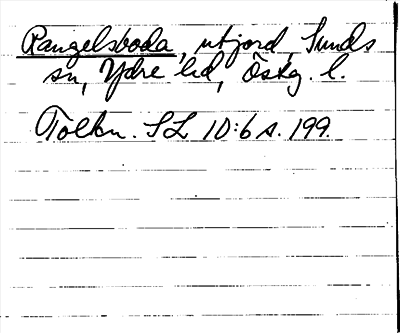 Rangelsboda, utjord, Sunds
sn, Ydre hd, Östg. l.
Tolkn. SL 10:6 s. 199.